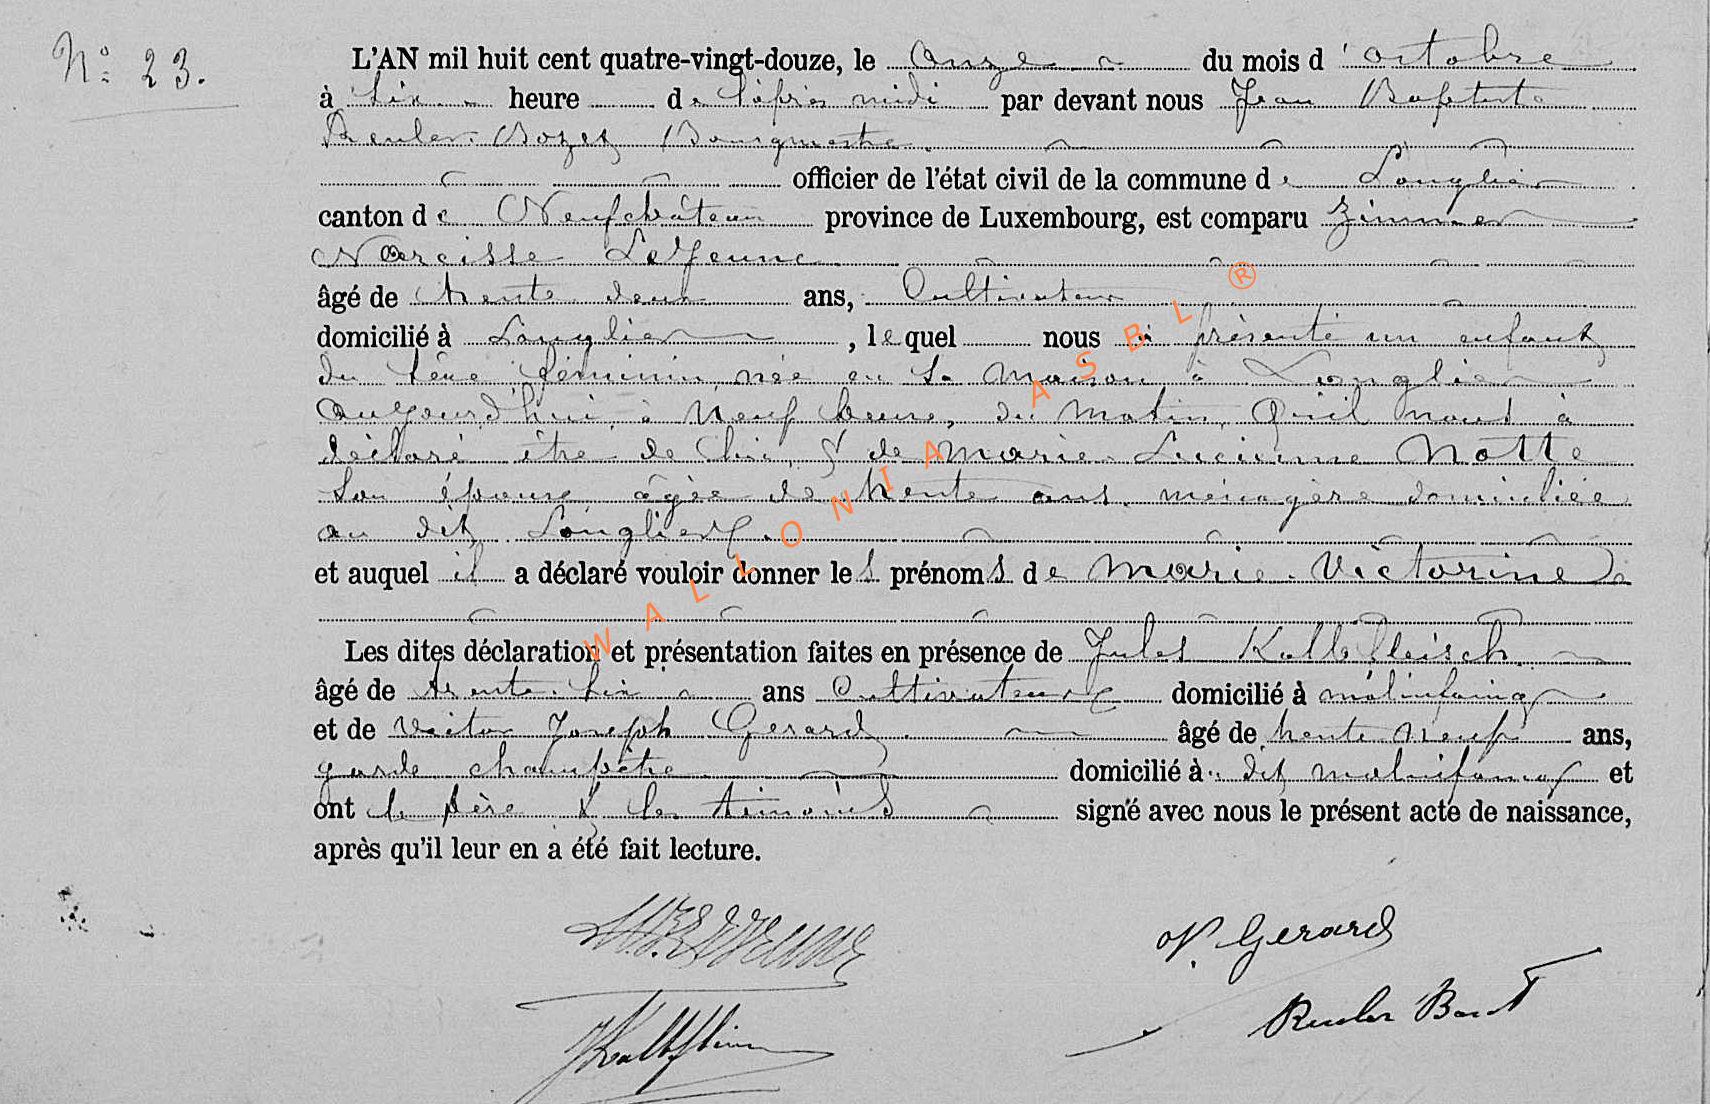 N° 23.
L'AN mil huit cent quatre-vingt-douze, le onze du mois d'octobre
à six heure de l'après midi par devant nous Jean Baptiste
Reuler Bozet Bourgmestre
officier de l'état civil de la commune de Longlier
canton de Neufchâteau province de Luxembourg, est comparu Zimmer
Narcisse LeJeune
âgé de trente deux ans, Cultivateur
domicilié à Longlier, lequel nous a présenté un enfant
du sexe féminin, née en sa maison à Longlier
aujourd'hui à neuf heure, du matin, qu'il nous à
déclaré être de lui, & de Marie Lucienne Notte
son épouse âgée de trente ans ménagère domiciliée
au dit Longlier
et auquel il a déclaré vouloir donner les prénoms de Marie Victorine
Les dites déclaration et présentation faites en présence de Jules Kalbfleisch
âgé de trente six ans Cultivateur domicilié à molinfaing
et de Victor Joseph Gerard âgé de trente neuf ans,
garde champêtre domicilié à dit molinfaing et
ont le père & les témoins signé avec nous le présent acte de naissance,
après qu'il leur en a été fait lecture.
V. Gerard
JKalbfleisch
WALLONIA ASBL ®